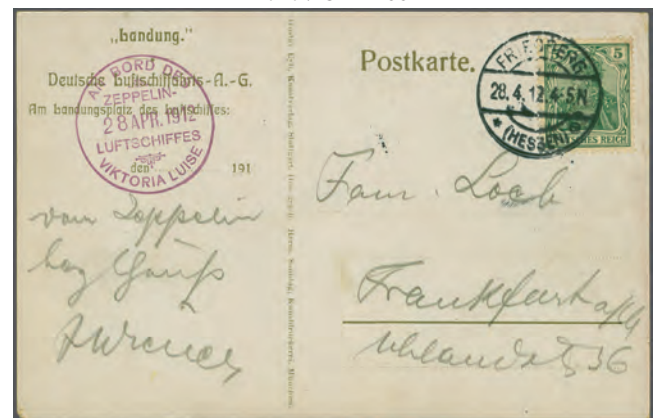 „Landung.”
Deutsche Luftschiffahrts-A.-G.
Am Landungsplatz des Luftschiffes:
den 191
AN BORD DES
ZEPPELIN-
28 APR. 1912
LUFTSCHIFFES
VIKTORIA LUISE
von Zeppelin
Postkarte.
FRIEDBERG
28.4.12.4-5N
* (HESSEN)
5
DEUTSCHES REICH
Fam. Loeb
Frankfurt a/M
Uhlandstr 56